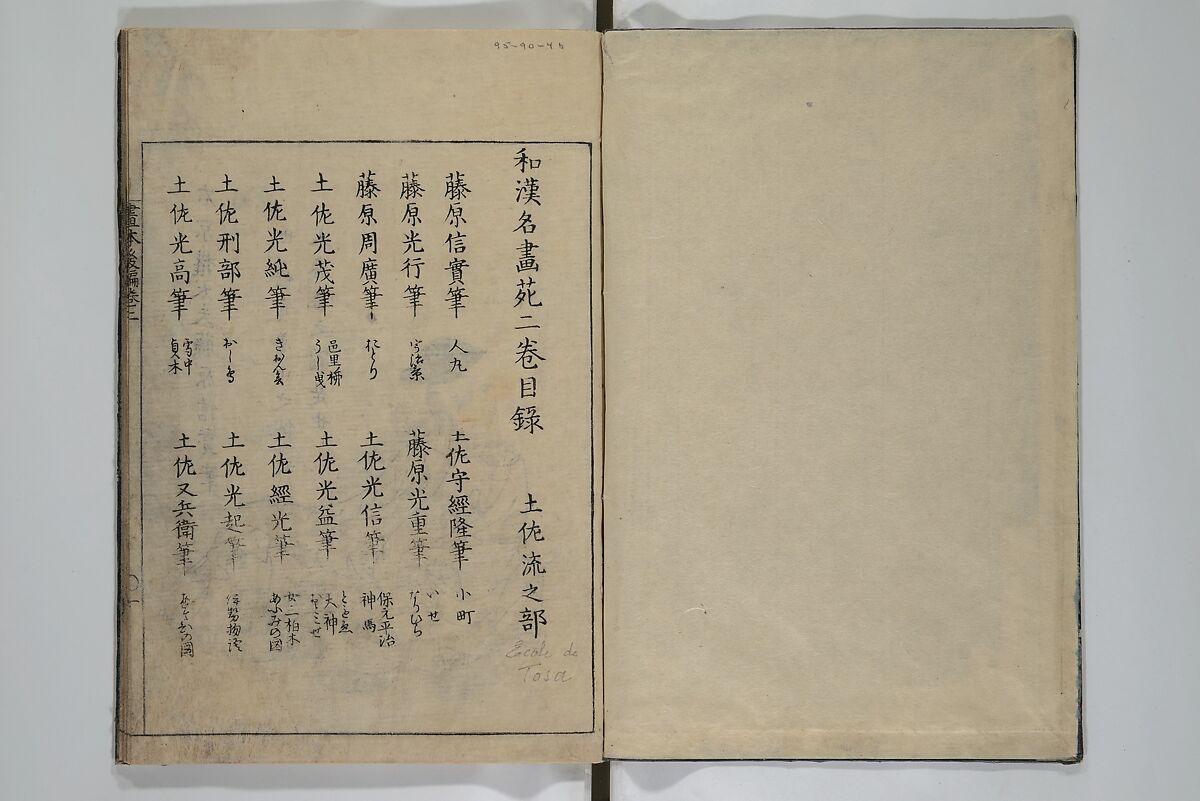 95-90-45
和漢名畫苑二卷目錄　土佐流之部
Ecole de
Tosa
藤原信實筆　人丸　土佐守經隆筆　小町
藤原光行筆　藤原光重筆　いせ　なりひら
藤原周廣筆　にとり　土佐光信筆　保元平治　神馬
土佐光茂筆　うし曳　土佐光益筆　天神
土佐光純筆　きおん會　土佐經光筆　女三柏木　の図
土佐刑部筆　おし鳥　土佐光起筆　伊勢物語
土佐光高筆　雪中　貞木　土佐又兵衛筆　の圖